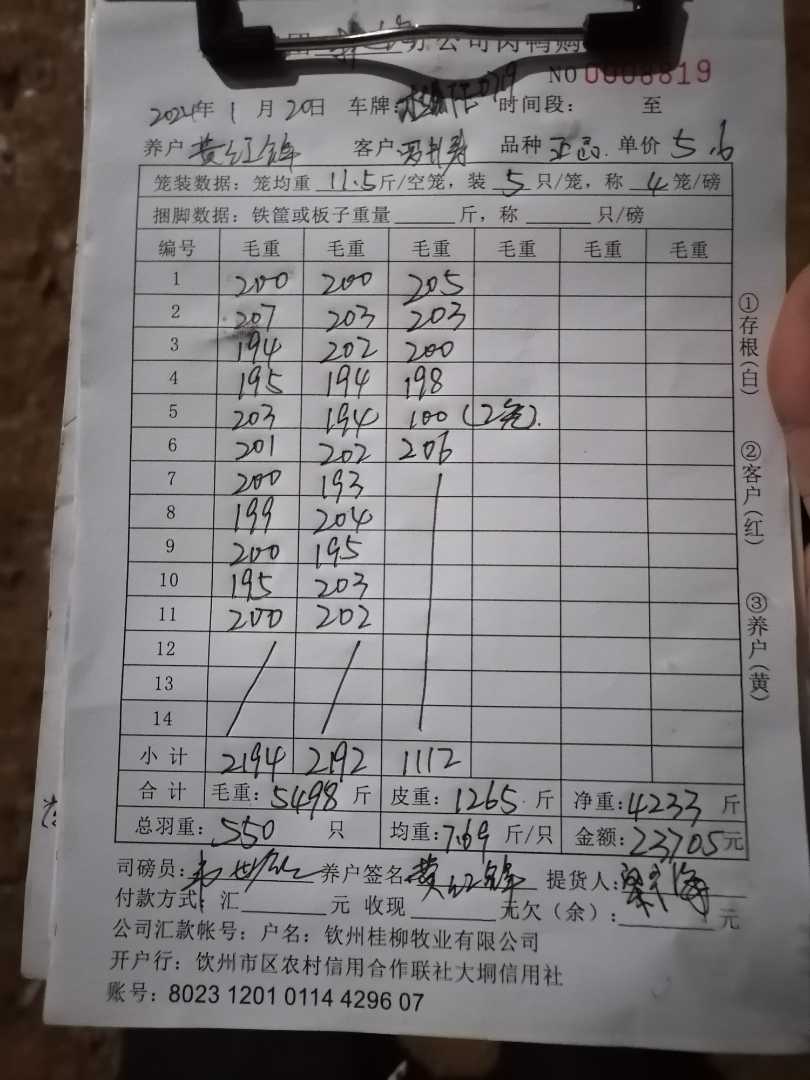 分公司肉鸭购
NO 0008819
2024年 1 月 20日 车牌: 079 时间段: 至
养户 黄红锋 客户 品种 正品 单价 5.6
笼装数据: 笼均重 11.5 斤/空笼, 装 5 只/笼, 称 4 笼/磅
捆脚数据: 铁筐或板子重量 斤, 称 只/磅
编号 毛重 毛重 毛重 毛重 毛重 毛重
1 200 200 205
2 207 203 203
3 194 202 200
4 195 194 198
5 203 194 100 (2笼).
6 201 202 206
7 200 193
8 199 204
9 200 195
10 195 203
11 200 202
12
13
14
小计 2194 2192 1112
合计 毛重: 5498 斤 皮重: 1265 斤 净重: 4233 斤
总羽重: 550 只 均重: 7.69 斤/只 金额: 23705 元
司磅员: 养户签名: 黄红锋 提货人:
付款方式: 汇 元 收现 无欠(余): 元
公司汇款帐号: 户名: 钦州桂柳牧业有限公司
开户行: 钦州市区农村信用合作联社大垌信用社
账号: 8023 1201 0114 4296 07
①存根(白)
②客户(红)
③养户(黄)